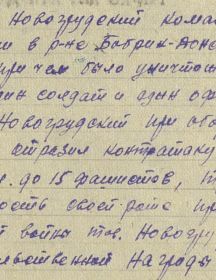 Новогрудский кома
в р-не Бобрик-Доне
при чем было уничто
солдат и один оф
Новогрудский при об
отразил контратаку
до 15 фашистов, т
ность своей роте при
й войны тов. Новогру
вительственной награды